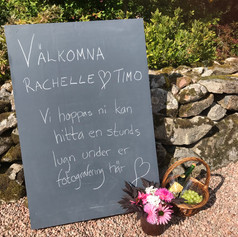 VÄLKOMNA
RACHELLE ♡ TIMO
Vi hoppas ni kan
hitta en stunds
lugn under er
fotografering här ♡